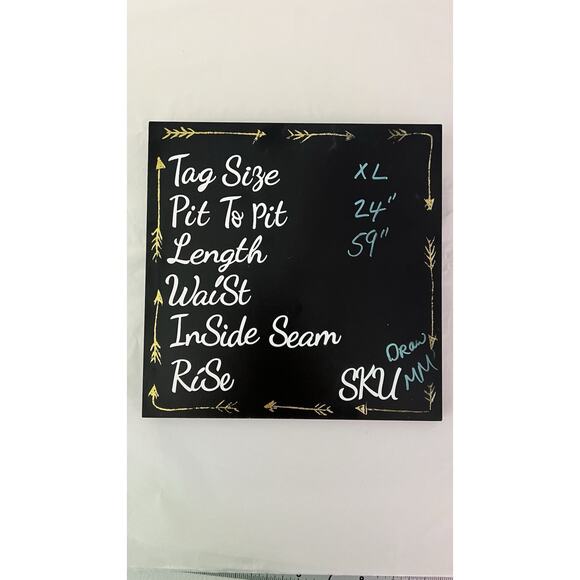 Tag Size XL
Pit To Pit 24"
Length 59"
WaiSt
InSide Seam
RiSe
SKU Draw MM